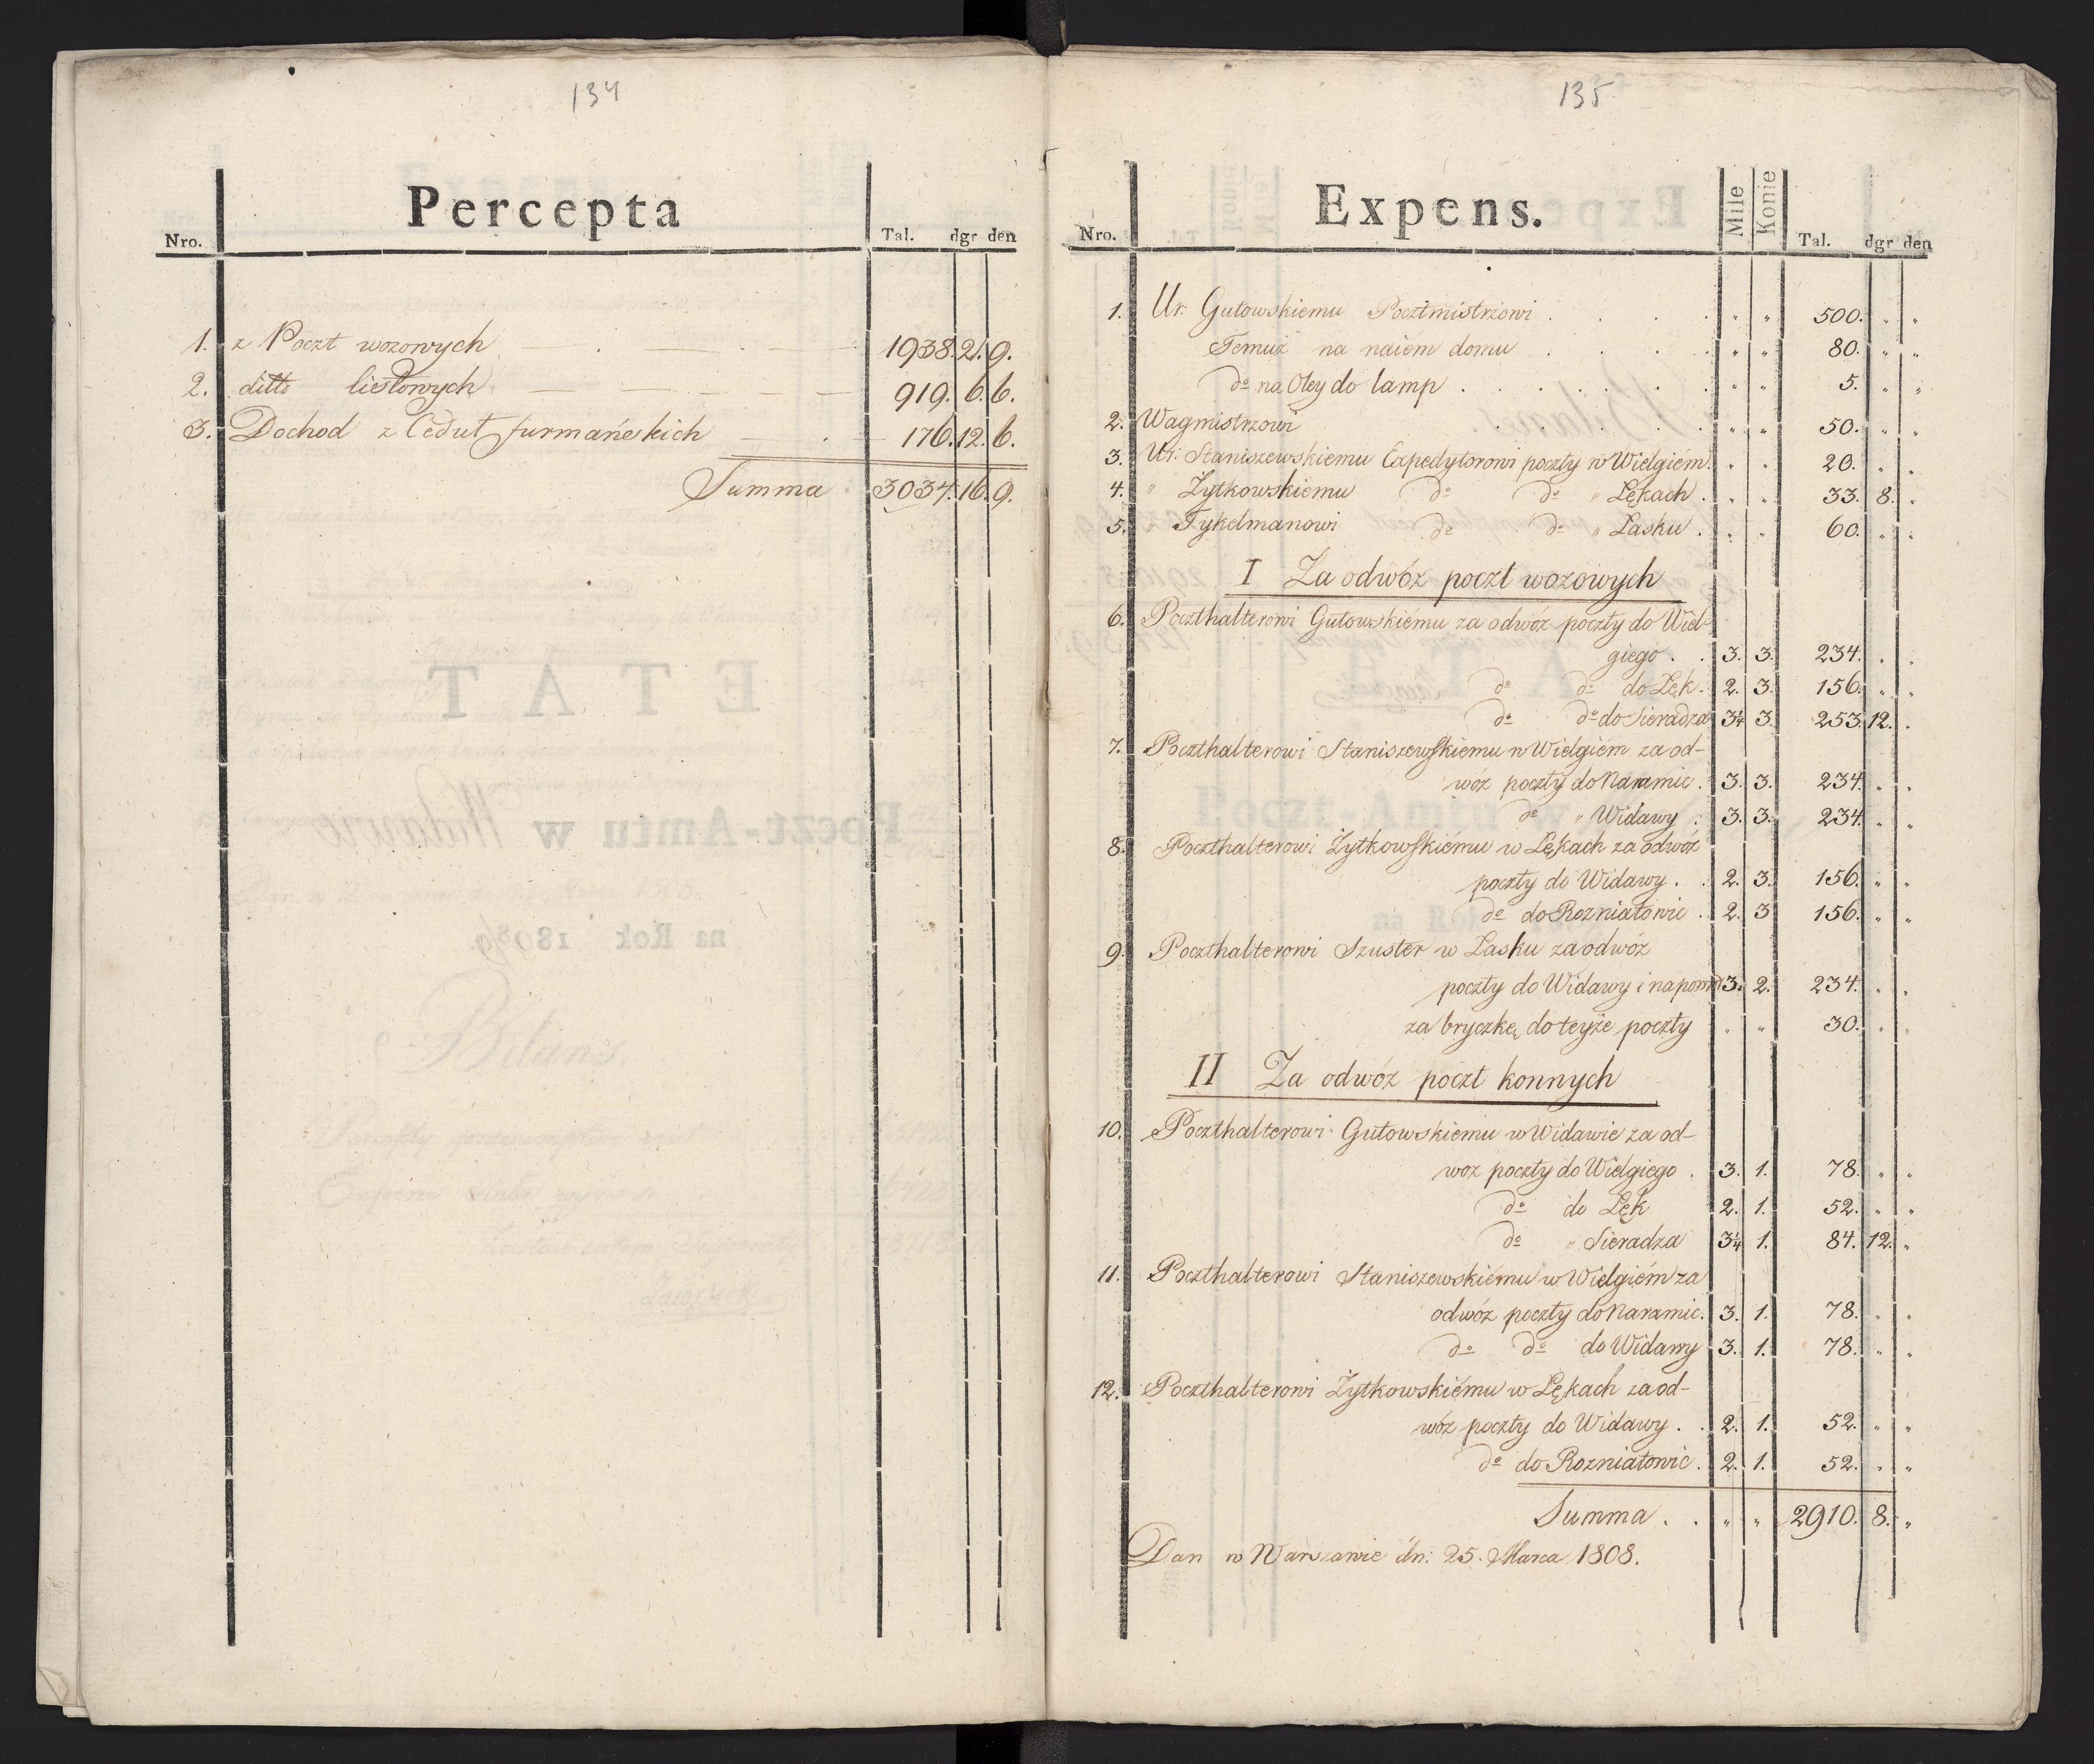 134
Percepta
Nro. Tal. dgr den
1. z Poczt wozowych 1938. 21. 9.
2. ditto listowych 919. 6. 6.
3. Dochod z Ceduł furmańskich 176. 12. 6.
Summa 3034. 16. 9.
135
Expens.
Nro. Mile Konie Tal. dgr den
1. Ur: Gutowskiemu Pocztmistrzowi . . . . " " 500. " "
Temuż na naiem domu . . . . " " 80. " "
do na Oley do lamp . . . . . . " " 5. " "
2. Wagmistrzowi . . . . . " " 50. " "
3. Ur: Staniszewskiemu Expedytorowi poczty w Wielgiém. " " 20. " "
4. " Zytkowskiemu do do " Lękach . " " 33. 8. "
5. " Tykelmanowi do do " Lasku . " " 60. " "
I Za odwóz poczt wozowych
6. Poczthalterowi Gutowskiému za odwóz poczty do Wiel-
giego . . 3. 3. 234. " "
do do do Lęk. 2. 3. 156. " "
do do do Sieradza 3¼ 3. 253. 12. "
7. Poczthalterowi Staniszewskiemu w Wielgiém za od-
wóz poczty do Naramic . 3. 3. 234. " "
do " Widawy . 3. 3. 234. " "
8. Poczthalterowi Żytkowskiému w Lękach za odwóz
poczty do Widawy . . 2. 3. 156. " "
do do Rozniatowic . 2. 3 156. " "
9. Poczthalterowi Szuster w Lasku za odwóz
poczty do Widawy i na powrót 3. 2. 234. " "
za bryczkę do teyże poczty " " 30. " "
II Za odwóz poczt konnych
10. Poczthalterowi Gutowskiemu w Widawie za od-
woz poczty do Wielgiego . 3. 1. 78. " "
do do Lęk 2. 1. 52. " "
do " Sieradza 3¼ 1. 84. 12. "
11. Poczthalterowi Staniszewskiému w Wielgiém za
odwóz poczty do Naramic. 3. 1. 78. " "
do do do Widawy 3. 1. 78. " "
12. Poczthalterowi Żytkowskiému w Lękach za od-
wóz poczty do Widawy . . 2. 1. 52. " "
do do Rozniatowic . 2. 1. 52. " "
Summa . . " " 2910. 8. "
Dan w Warszawie dn: 25. Marca 1808.